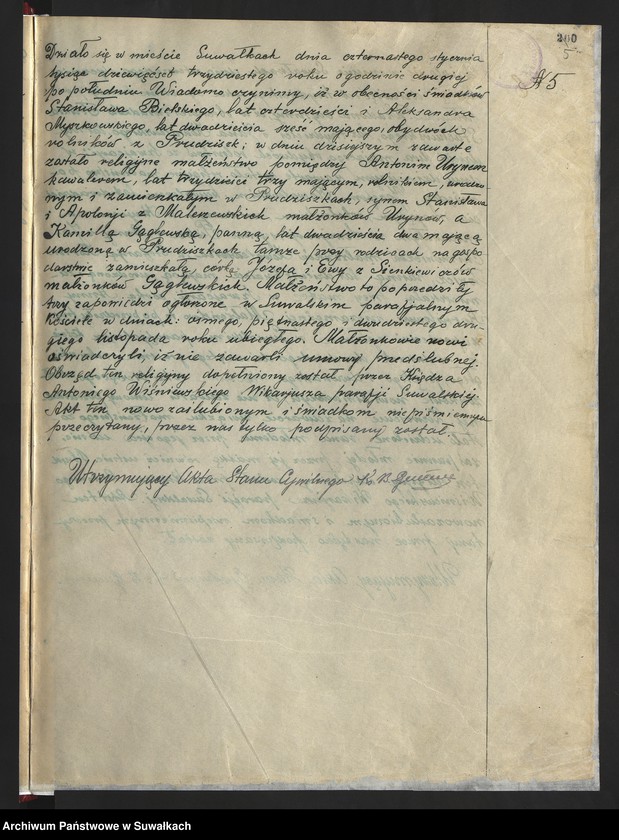 200
5
№ 5
Działo się w mieście Suwałkach dnia czternastego stycznia
tysiąc dziewięćset trzydziestego roku o godzinie drugiej
po południu Wiadomo czynimy, iż w obecności świadków
Stanisława Bielskiego, lat czterdzieści i Aleksandra
Myszkowskiego, lat dwadzieścia sześć mającego, obydwóch
rolników z Prudziszk; w dniu dzisiejszym zawarte
zostało religijne małżeństwo pomiędzy Antonim Urynem
kawalerem, lat trzydzieści trzy mającym, rolnikiem, urodzo-
nym i zamieszkałym w Prudziszkach, synem Stanisława
i Apolonji z Maleszewskich małżonków Urynów, a
Kamillą Gąglewską, panną, lat dwadzieścia dwa mającą
urodzoną w Prudziszkach tamże przy rodzicach na gospo
darstwie zamieszkałą, córką Józefa i Ewy z Sienkiewiczów
małżonków Gąglewskich. Małżeństwo to poprzedziły
trzy zapowiedzi ogłoszone w Suwalskim parafjalnym
Kościele w dniach: ósmego, piętnastego i dwudziestego dru
giego listopada roku ubiegłego. Małżonkowie nowi
oświadczyli, iż nie zawarli umowy przedślubnej.
Obrzęd ten religijny dopełniony został przez Księdza
Antoniego Wiśniewskiego Wikarjusza parafji Suwalskiej.
Akt ten nowozaślubionym i świadkom niepiśmiennym
przeczytany, przez nas tylko podpisany został.
Utrzymujący Akta Stanu Cywilnego K. B.
Archiwum Państwowe w Suwałkach